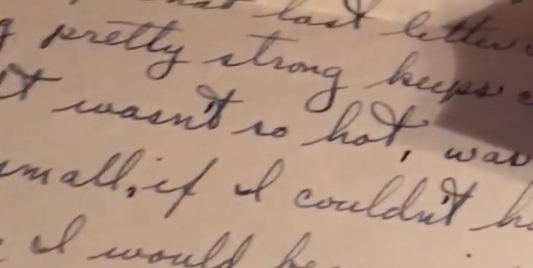 last letter
pretty strong keeps
wasn't so hot, was
small, if I couldn't
I would be